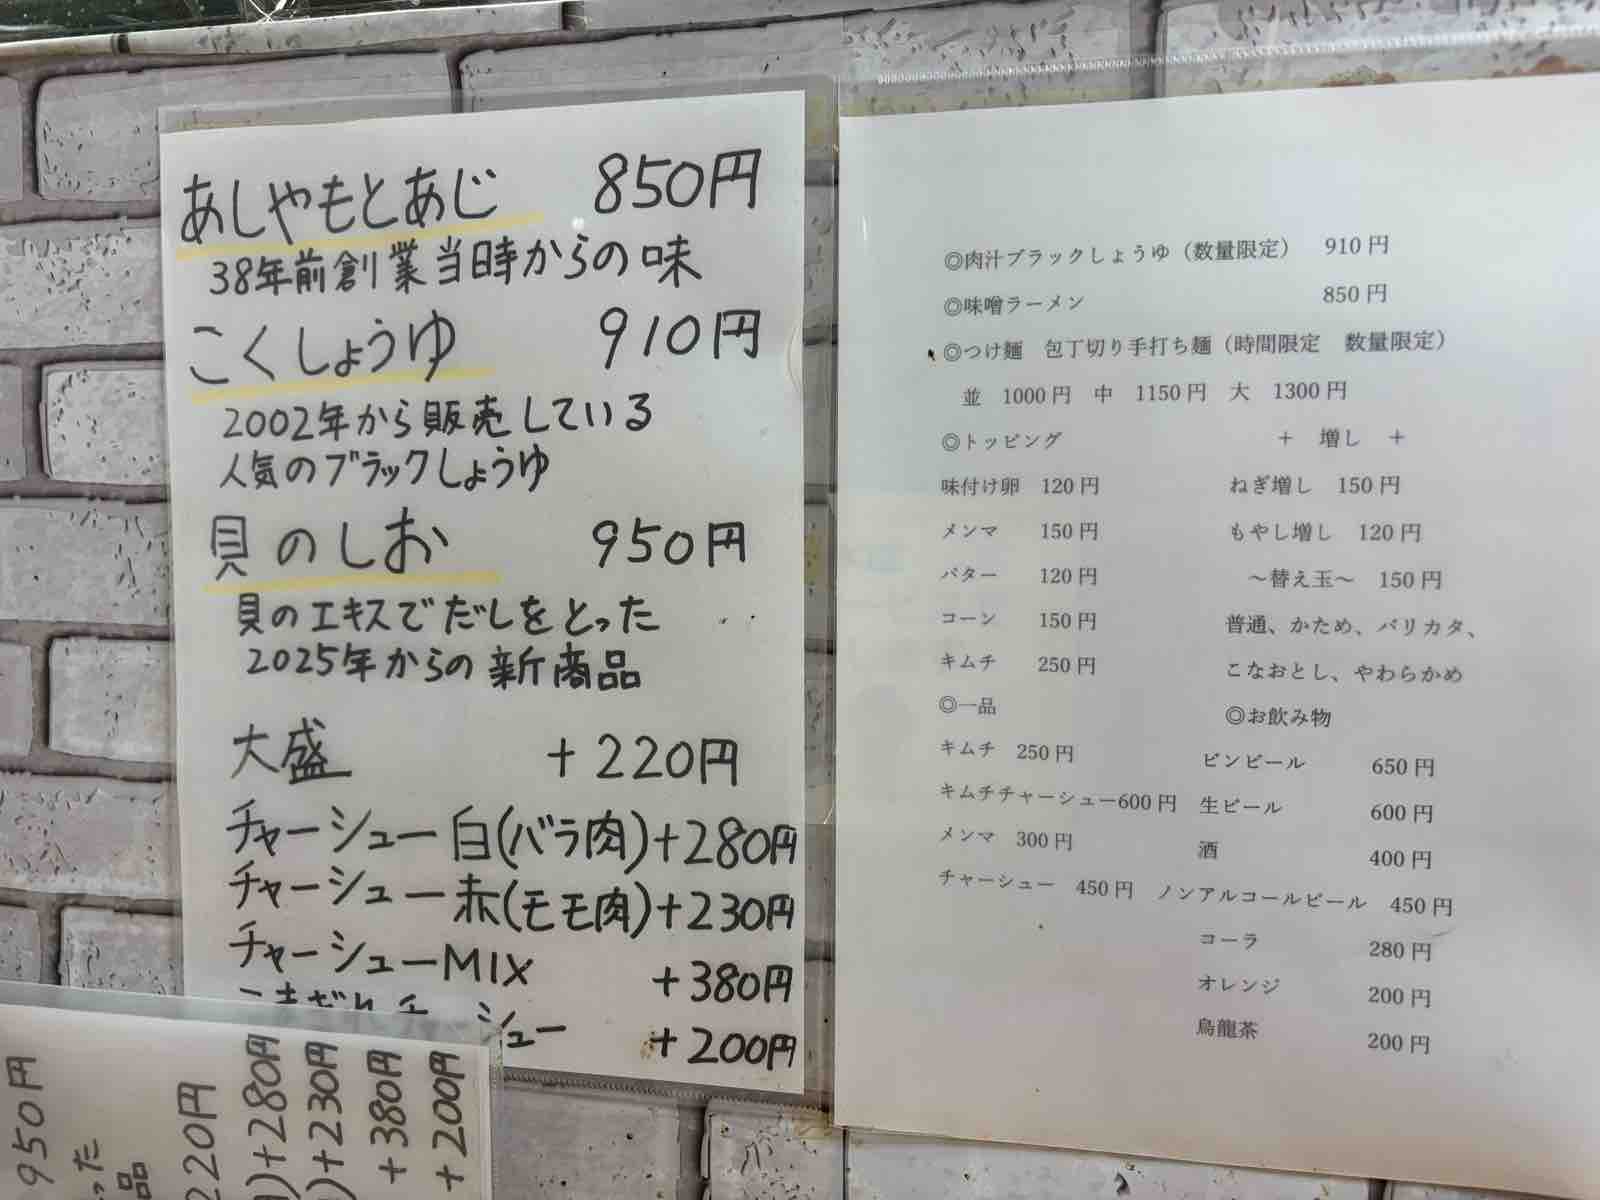 あしやもとあじ 850円
38年前創業当時からの味
こくしょうゆ 910円
2002年から販売している
人気のブラックしょうゆ
貝のしお 950円
貝のエキスでだしをとった
2025年からの新商品
大盛 +220円
チャーシュー白(バラ肉)+280円
チャーシュー赤(モモ肉)+230円
チャーシューMIX +380円
チャーシュー +200円
◎肉汁ブラックしょうゆ（数量限定） 910円
◎味噌ラーメン 850円
◎つけ麺 包丁切り手打ち麺（時間限定 数量限定）
並 1000円 中 1150円 大 1300円
◎トッピング + 増し +
味付け卵 120円 ねぎ増し 150円
メンマ 150円 もやし増し 120円
バター 120円 〜替え玉〜 150円
コーン 150円 普通、かため、バリカタ、
キムチ 250円 こなおとし、やわらかめ
◎一品 ◎お飲み物
キムチ 250円 ビンビール 650円
キムチチャーシュー600円 生ビール 600円
メンマ 300円 酒 400円
チャーシュー 450円 ノンアルコールビール 450円
コーラ 280円
オレンジ 200円
烏龍茶 200円
950円
った
品
220円
)+280円
)+230円
+380円
+200円